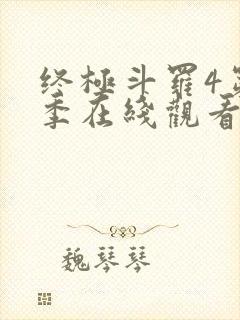 终極斗羅4
季在綫觀看
魏琴琴